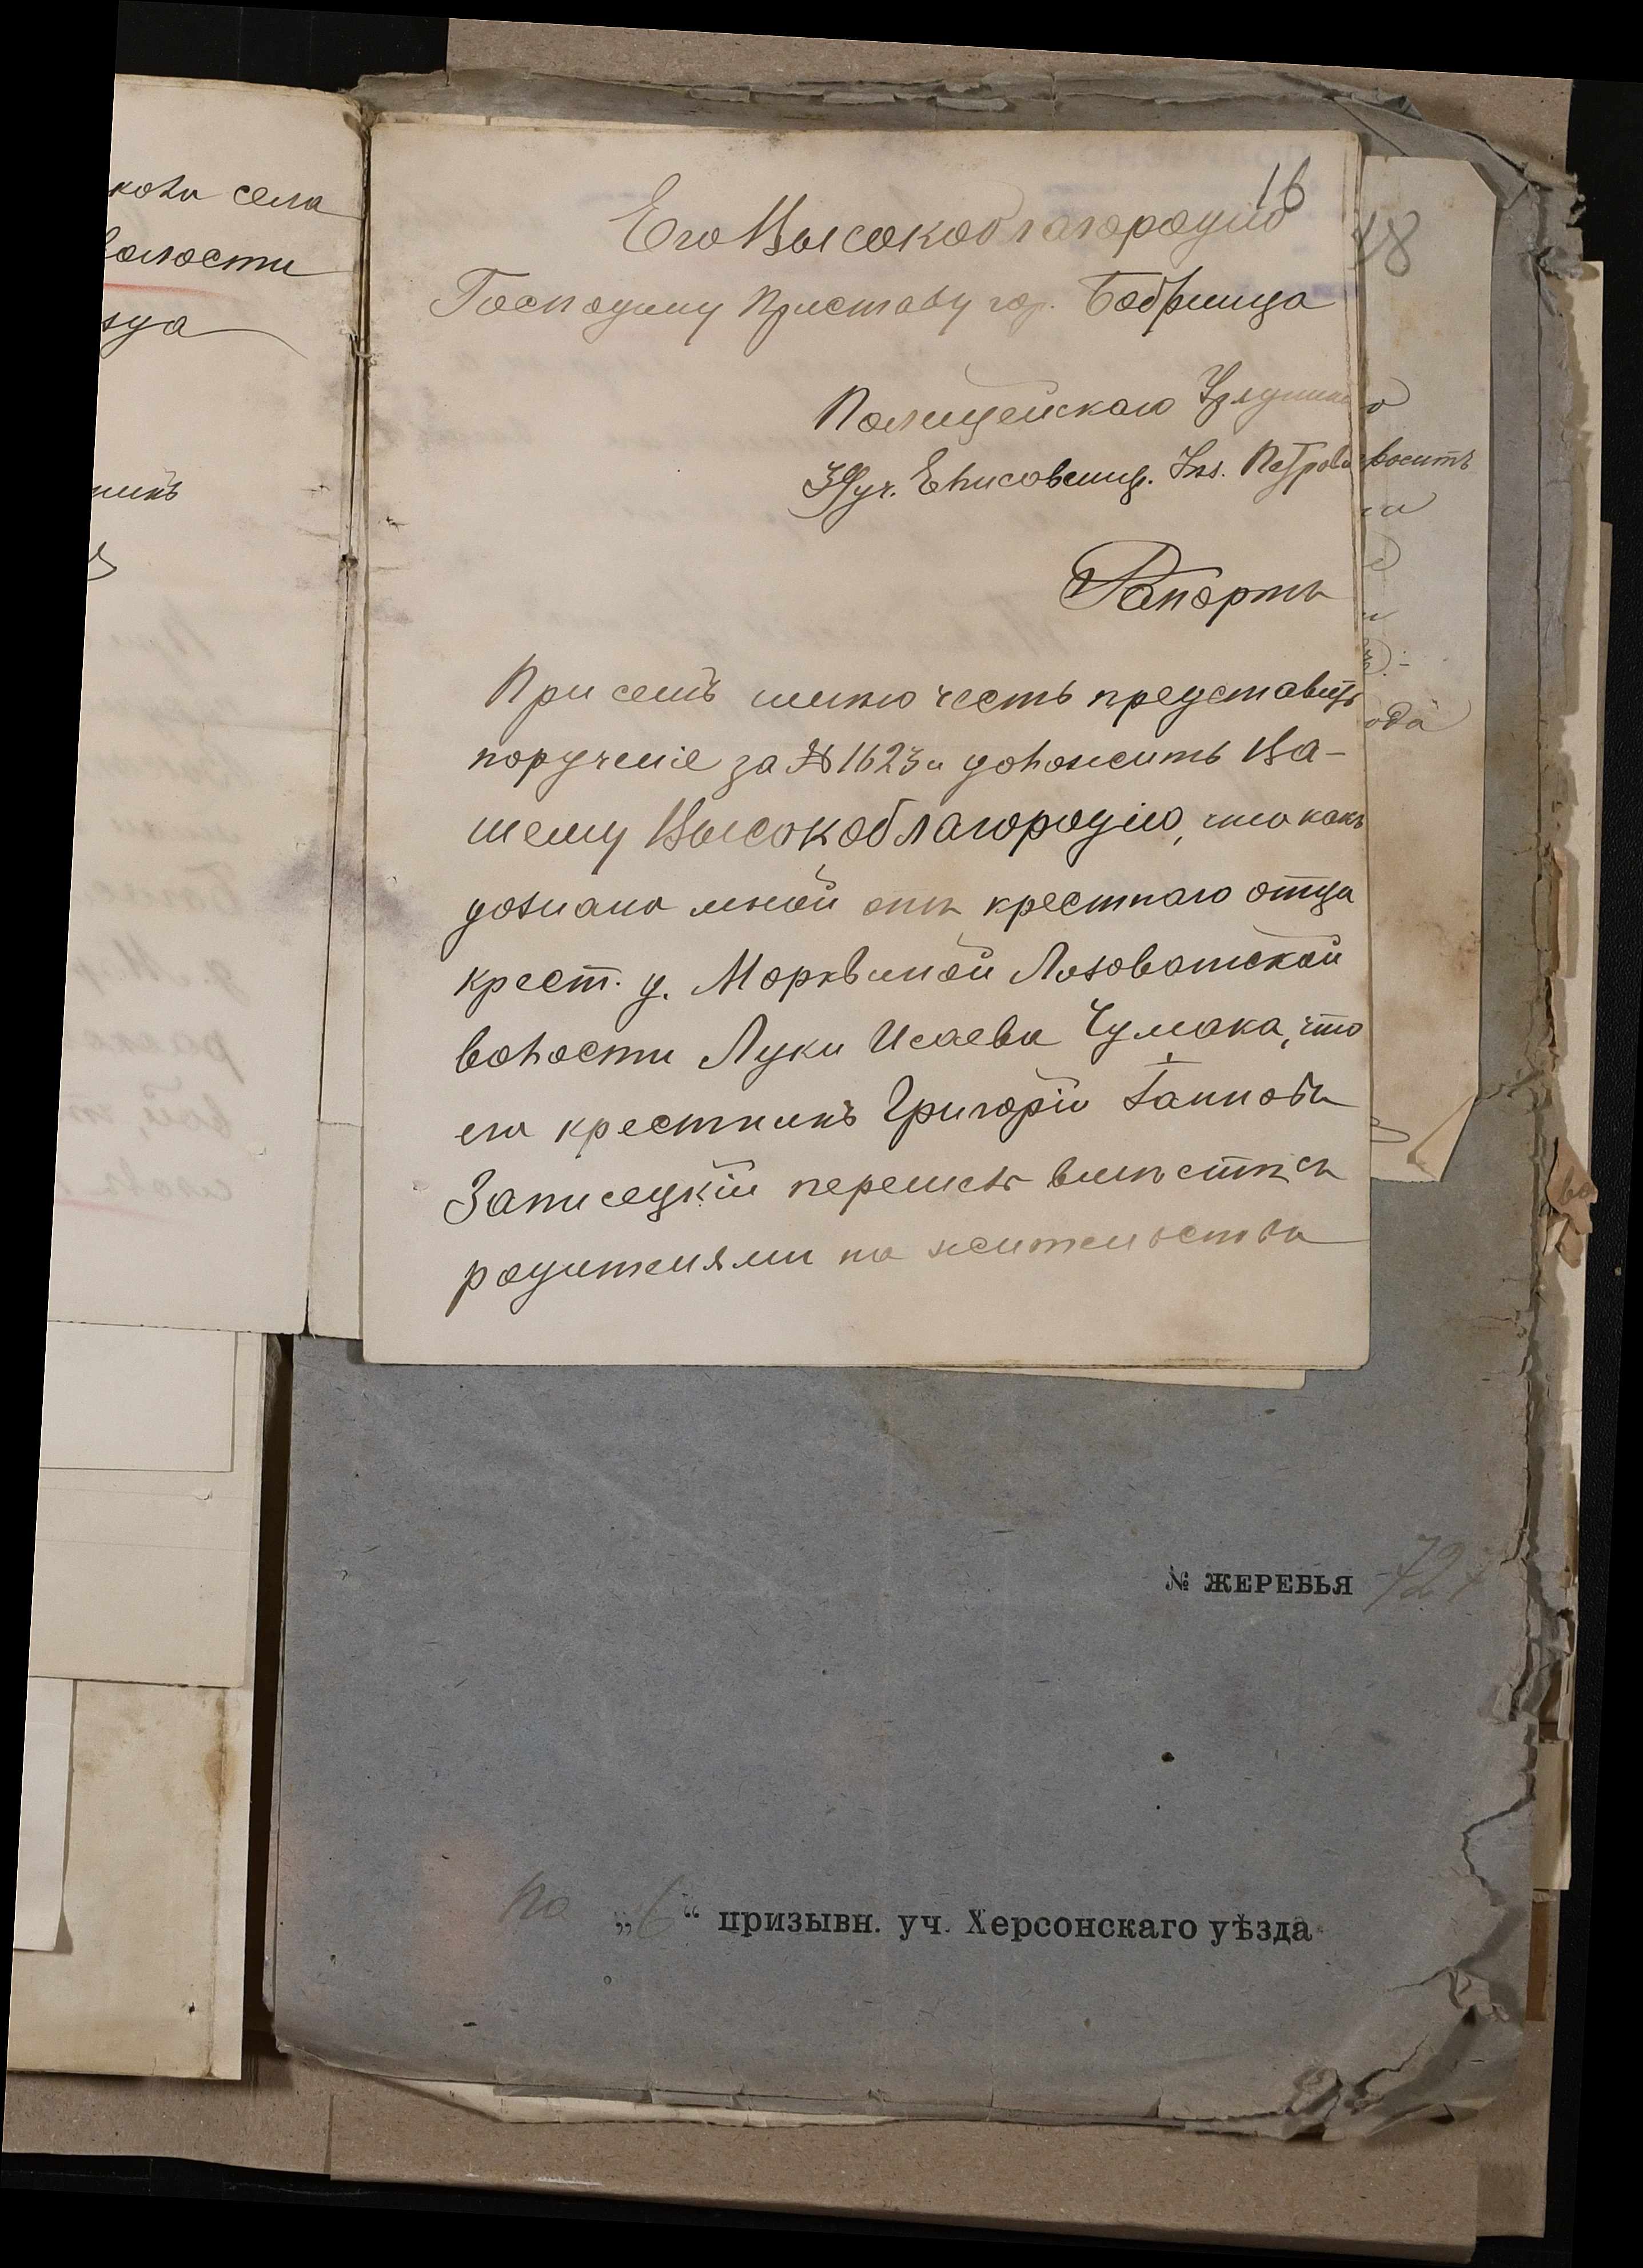 кова села
волости
зда
никъ
16
48
Его Высокоблагородію
Господину Приставу гор. Бобринца
Полицейскаго Урядника
3 уч. Елисоветгр. Уѣз. Петрова
Рапортъ
При семъ имѣю честь представить
порученіе за № 1623 и доложить Ва-
шему Высокоблагородію, что какъ
дознано мной отъ крестнаго отца
крест. д.Морквиной Лозоватской
волости Луки Исаева Чумака, что
его крестникъ Григорій
перешелъ вмѣстѣ съ
родителями на жительство
ода
№ ЖЕРЕБЬЯ 727
По „6“ призывн. уч. Херсонскаго уѣзда